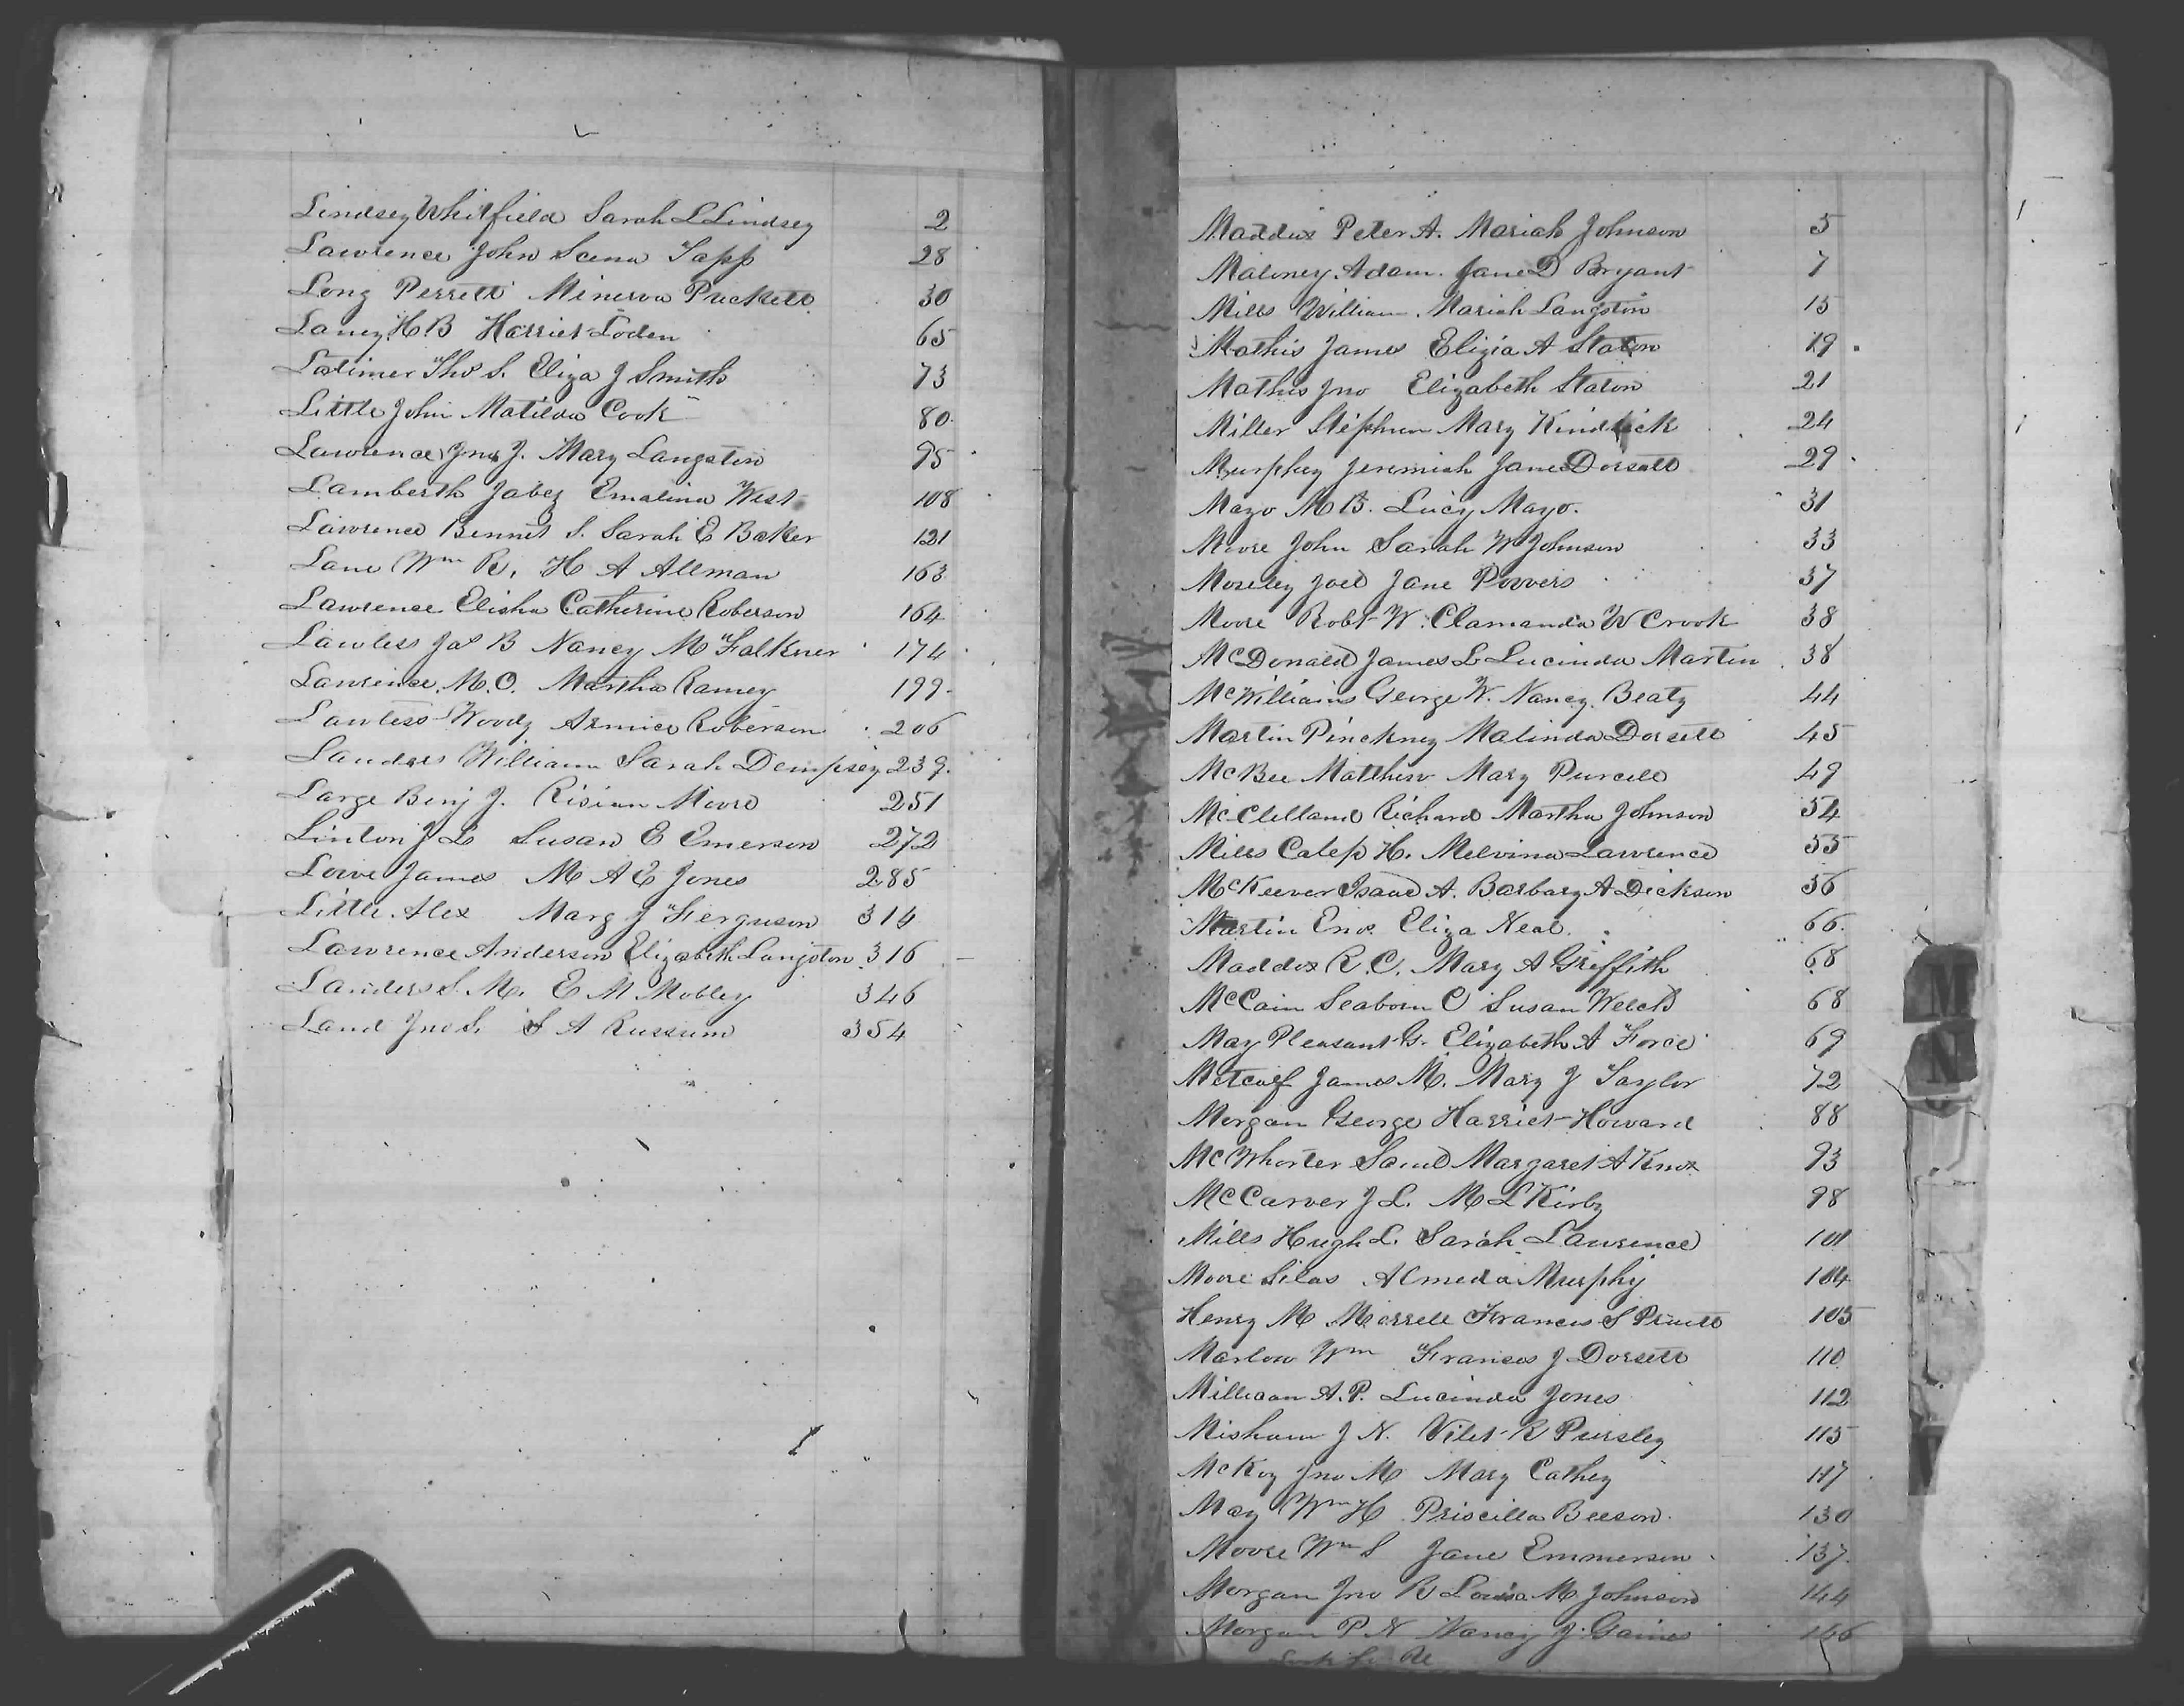 Lindsey Whitfield Sarah L Lindsey 2
Lawrence John Scena Tapp 28
Long Perrett Minerva Puckett 30
Laney H B Harriet Loden 65
Latimer Thos S. Eliza J Smith 73
Little John Matilda Cook 80
Lawrence Jno J. Mary Langston 95
Lamberth Jabez Emalina West 108
Lawrence Bennet S. Sarah E Baker 121
Lane Wm R. H A Allman 163
Lawrence Elisha Catherine Roberson 164
Lawless Jas B Nancy M Falkner 174
Lawrence M. O. Martha Ramey 199
Lawless Woody Armica Roberson 206
Landers William Sarah Dempsey 239
Large Benj J. Risian Moore 251
Linton J L Susan E Emerson 272
Love James M A E Jones 285
Little Alex Marg J Ferguson 314
Lawrence Anderson Elizabeth Langston 316
Landers S. M. E M Mobley 346
Land Jno S. S A Russum 354
Maddux Peter A. Mariah Johnson 5
Maloney Adam Jane D Bryant 7
Mills William Mariah Langston 15
Mathis James Elizia A Staton 19
Mathis Jno Elizabeth Staton 21
Miller Stephen Mary Kindrick 24
Murphey Jeremiah Jane Dorsett 29
Mayo M B. Lucy Mayo. 31
Moore John Sarah W Johnson 33
Moseley Joel Jane Powers 37
Moore Robt W. Clamanda W Crook 38
McDonald James L Lucinda Martin 38
McWilliams George W. Nancy Beaty 44
Martin Pinckney Malinda Dorsett 45
McBee Matthew Mary Purcell 49
McClelland Richard Martha Johnson 54
Mills Calep H. Melvina Lawrence 55
McKeever Isaac A. Barbary A Dickson 56
Martin Enos Eliza Neal. 66
Maddox R. C. Mary A Griffith 68
McCain Seaborn C Susan Welch 68
May Pleasant G. Elizabeth A Force 69
Metcalf James M. Mary J Taylor 72
Morgan George Harriet Howard 88
McWhorter Saml Margaret A Knox 93
McCarver J L. M L Kirby 98
Mills Hugh L. Sarah Lawrence 101
Moore Silas Almeda Murphy 104
Henry M Merrell Francis S Pruett 105
Marlow Wm Frances J Dorsett 110
Millican A. P. Lucinda Jones 112
Misham J N. Vilet R Pursley 115
McKoy Jno M Mary Cathey 117
May Wm H Priscilla Beeson. 130
Moore Wm S Jane Emmerson 137
Morgan Jno B Louisa M Johnson 144
Morgan P N Nancy J. Gaines 146
M
N